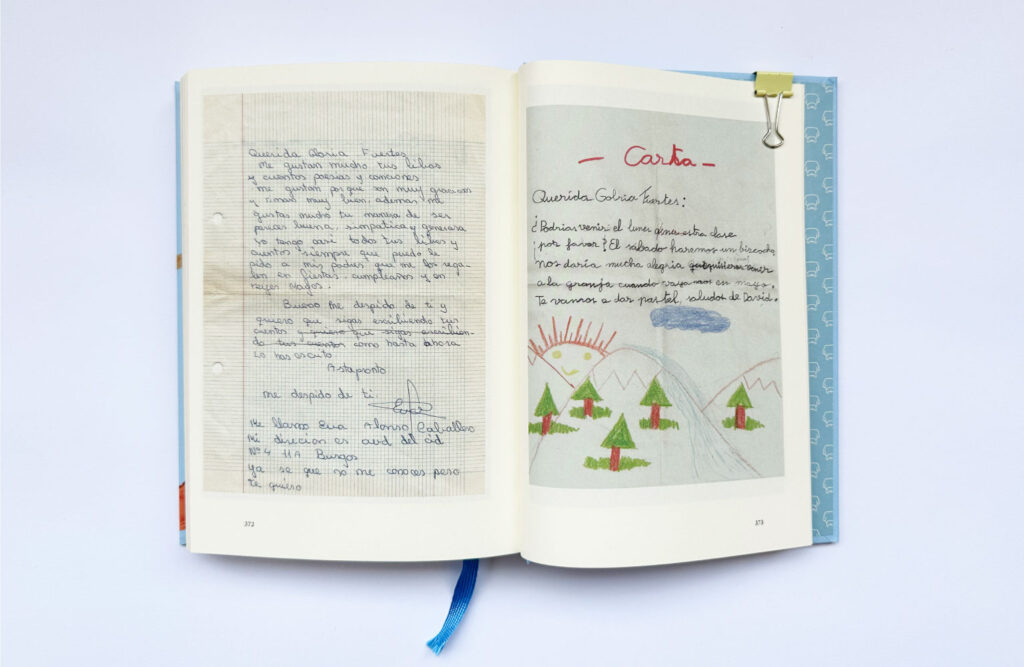 Querida Gloria Fuertes
Me gustan mucho tus libros
y cuentos poesias y canciones
me gustan porque son muy graciosos
y riman muy bien, además me
gustas mucho tu manera de ser
pareces buena, simpatica y generosa
yo tengo casi todos tus libros y
cuentos siempre que puedo le
pido a mis padres que me los rega-
len en fiestas, cumpleaños y en
reyes magos.
Bueno me despido de ti y
quiero que sigas escribiendo tus
cuentos y quiero que sigas escribien-
do tus cuentos como hasta ahora
lo has escrito
Astapronto
me despido de ti
Eva
Me llamo Eva Alonso Caballero
Mi direcion es avd del cid
Nº 4 11A Burgos
ya se que no me conoces pero
te quiero
372
- Carta -
Querida Golria Fuertes:
¿Podrias venir el lunes a nuestra clase
por favor? El sábado haremos un bizcocho,
nos daría mucha alegria que quisieras venir
a la granja cuando vayamos en mayo.
Te vamos a dar pastel, saludos de David.
373